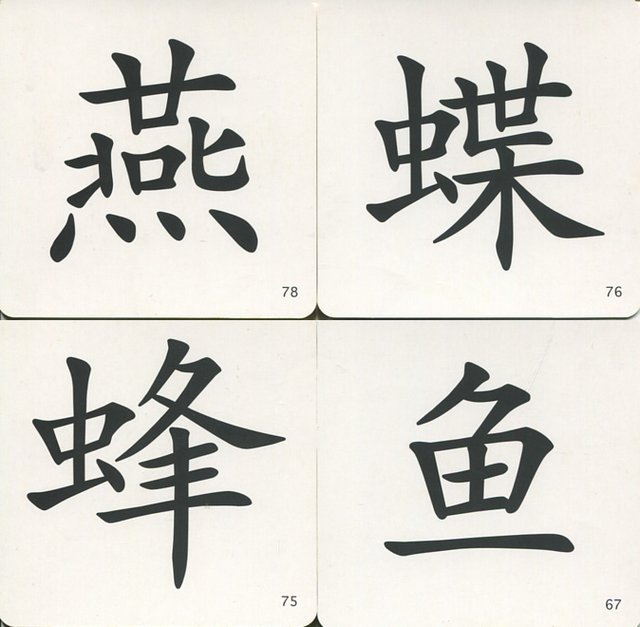 燕
78
蝶
76
蜂
75
鱼
67